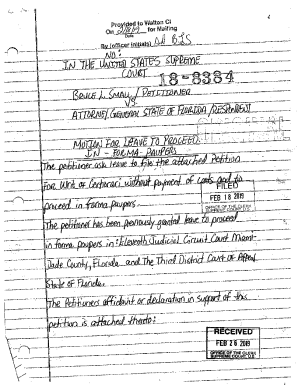 Provided to Walton CI
On 2/18/19 for Mailing
Date
By (officer initials)
NO:
IN THE UNITED STATES SUPREME
COURT
18-8384
BRUCE L. SMALL / PETITIONER
VS.
ATTORNEY GENERAL STATE OF FLORIDA / RESPONDENT
MOTION FOR LEAVE TO PROCEED
IN - FORMA PAUPERS
The petitioner ask leave to file the attached Petition
For Writ of Certorari without payment of costs and to
proceed in forma paupers.
FILED
FEB 18 2019
OFFICE OF THE CLERK
SUPREME COURT, U.S.
The petitioner has been previously granted leave to proceed
in forma paupers in: Eleventh Judicial Circuit Court Miami-
Dade County, Florida and The Third District Court of Appeal
State of Florida.
The Petitioners affidavit or declaration in support of this
petition is attached thereto:
RECEIVED
FEB 26 2019
OFFICE OF THE CLERK
SUPREME COURT, U.S.